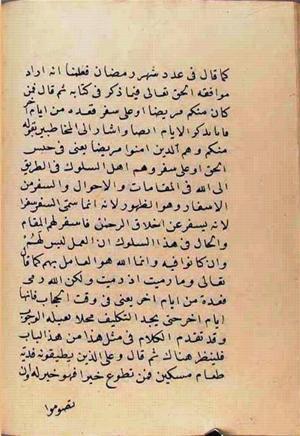 كما قال فى عدد شهر رمضان فعلمنا انه اراد
موافقة الحق تعالى فيما ذكر فى كتابه ثم قال فمن
كان منكم مريضا او على سفر فعدة من ايام اخر
فاتا بذكر الايام ايضا واشار الى المخاطبين بقوله
منكم وهم الذين امنوا مريضا يعنى فى حبس
الحق او على سفر وهم اهل السلوك فى الطريق
الى الله فى المقامات والاحوال والسفر من
الاسفار وهو الظهور لانه انما سمى السفر سفرا
لانه يسفر عن اخلاق الرجال فاسفر لهم المقام
والحال فى هذا السلوك ان العمل ليس لهم
وان كانوا فيه وانما الله هو العامل بهم كما قال
تعالى وما رميت اذ رميت ولكن الله رمى
فعدة من ايام اخر يعنى فى وقت الحجاب فانها
ايام اخر حتى يجد التكليف محلا يقبله الوجوب
وقد تقدم الكلام فى مثل هذا من هذا الباب
فلينظر هناك ثم قال وعلى الذين يطيقونه فدية
طعام مسكين فمن تطوع خيرا فهو خير له وان
تصوموا